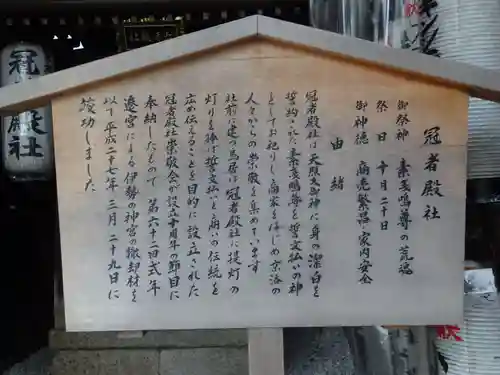 冠者殿社
御祭神　素戔嗚尊の荒魂
祭日　十月二十日
御神徳　商売繁昌・家内安全
由緒
冠者殿は天照大御神に身の潔白を
誓約された素戔嗚尊を誓文払いの神
としてお祀りし商家をはじめ京洛の
人々からの崇敬を集めています
社前に建つ鳥居は冠者殿に提灯の
灯りを捧げ誓文払いと願いの伝統を
広め伝えることを目的に設立された
冠者殿社崇敬会が設立十周年の節目に
奉納したもので第六十二回式年
遷宮による伊勢の神宮の撤却材を
以て平成二十七年三月二十九日に
竣功しました
冠者殿社